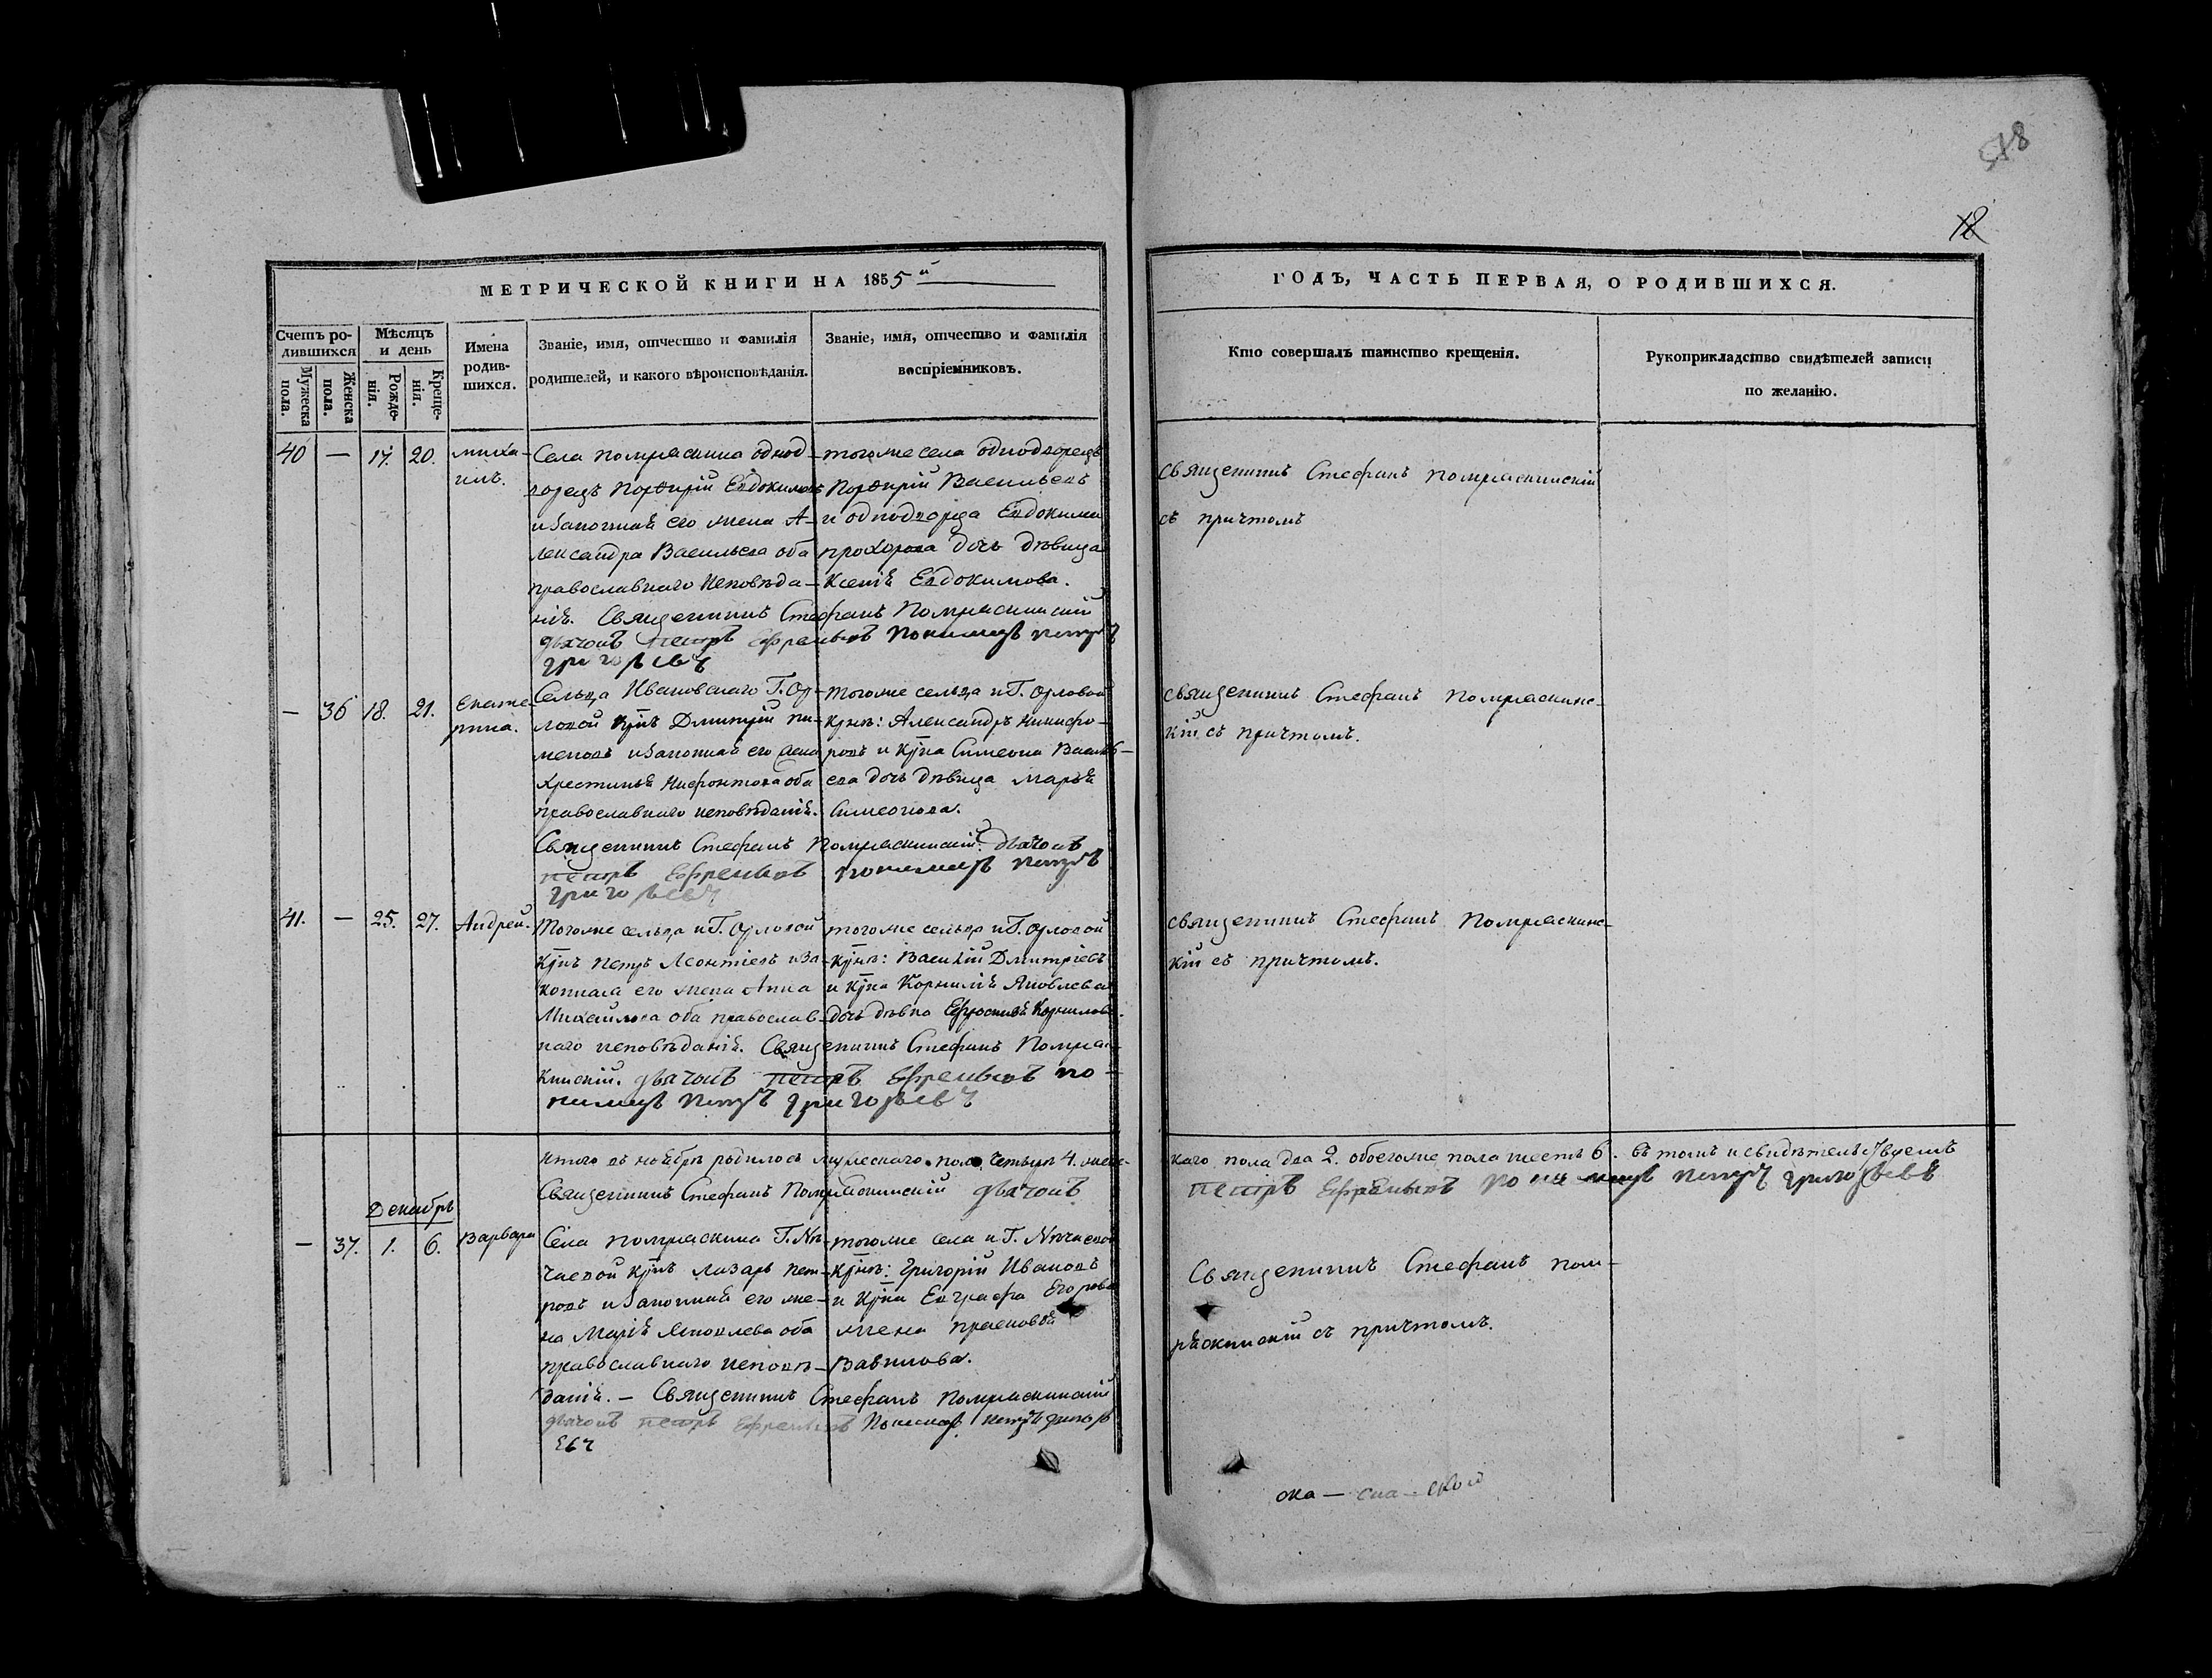 518
18
МЕТРИЧЕСКОЙ КНИГИ НА 1855й
ГОДЪ, ЧАСТЬ ПЕРВАЯ, О РОДИВШИХСЯ.
Счетъ ро-
дившихся
Мужеска
пола.
Женска
пола.
Мѣсяцъ
и день
Рожде-
нія.
Креще-
нія.
Имена
родив-
шихся.
Званіе, имя, отчество и фамилія
родителей, и какого вѣроисповѣданія.
Званіе, имя, отчество и фамилія
воспріемниковъ.
Кто совершалъ таинство крещенія.
Рукоприкладство свидѣтелей записи
по желанію.
40 — 17. 20. Миха-
илъ.
Села Помряскина однод-
ворецъ Порфирій Евдокимовъ
и Законная его жена А-
лександра Васильева оба
православнаго исповѣда-
нія. Священникъ Стефанъ Помряскинскій
дьячокъ Петръ Ефремовъ пономарь Петръ
Григорьевъ
тогоже села однодворецъ
Порфирій Васильевъ
и однодворца Евдокима
Прохорова дочь дѣвица
Ксенія Евдокимова.
Священникъ Стефанъ Помряскинскій
съ причтомъ
— 36 18. 21. Екате-
рина.
Сельца Ивановскаго Г. Ор-
ловой крнъ Дмитрій Пи-
меновъ и Законная его жена
Крестинья Нифонтова оба
православнаго исповѣданія.
Священникъ Стефанъ Помряскинскій. дьячокъ
Петръ Ефремовъ пономарь Петръ
Григорьевъ
тогоже сельца и Г. Орловой
крнъ: Александръ Никифо-
ровъ и крна Симеона Василь-
ева дочь дѣвица Марья
Симеонова.
Священникъ Стефанъ Помряскинс-
кій съ причтомъ.
41. — 25. 27. Андрей.
Тогоже сельца и Г. Орловой
крнъ Петръ Леонтіевъ и За-
конная его жена Анна
Михайлова оба православ-
наго исповѣданія. Священникъ Стефанъ Помряс-
кинскій. дьячокъ Петръ Ефремовъ по-
номарь Петръ Григорьевъ
тогоже сельца и Г. Орловой
крнъ: Василій Дмитріевъ
и крна Корнилія Яковлева
дочь дѣвка Ефросинья Корнилова.
Священникъ Стефанъ Помряскинс-
кій съ причтомъ.
Итого въ ноябрѣ родилось мужескаго пола четыре 4. женс-
каго пола два 2. обоегоже пола шесть 6. въ томъ и свидѣтельствуемъ
Священникъ Стефанъ Помряскинскій дьячокъ
Петръ Ефремовъ пономарь Петръ Григорьевъ
Декабрь
— 37. 1. 6. Варвара
Села Помряскина Г.
чаевой крнъ Лазарь Пет-
ровъ и Законная его же-
на Марія Яковлева оба
православнаго исповѣ-
данія. — Священникъ Стефанъ Помряскинскій
дьячокъ Петръ Ефремовъ Пономарь Петръ Григорь
евъ
тогоже села и Г.
крнъ: Григорій Ивановъ
и крна Евграфа Егорова
жена Прасковья
Вавилова.
Священникъ Стефанъ Пом-
ряскинскій съ причтомъ.
ска — ской